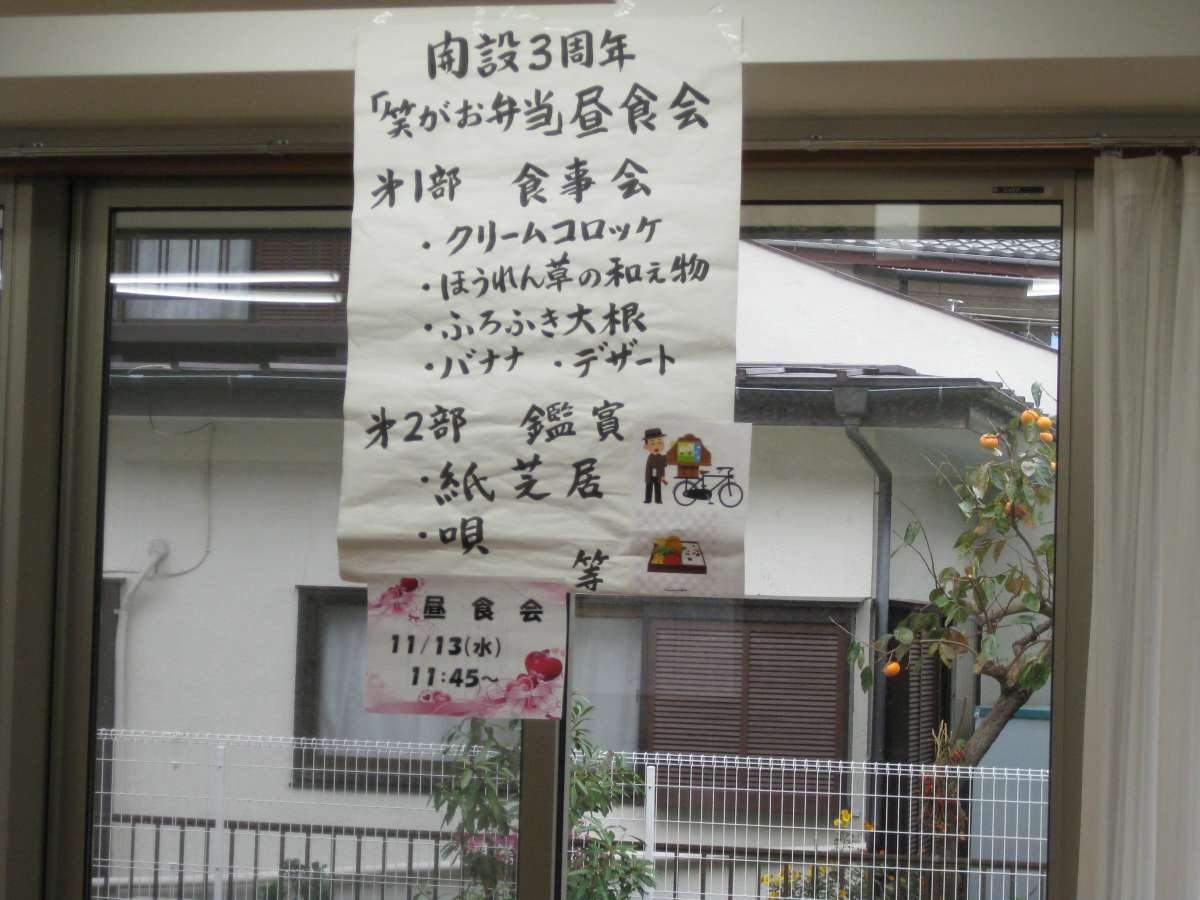 開設3周年
「笑がお弁当」昼食会
第1部 食事会
・クリームコロッケ
・ほうれん草の和え物
・ふろふき大根
・バナナ ・デザート
第2部 鑑賞
・紙芝居
・唄
等
昼食会
11/13(水)
11:45～